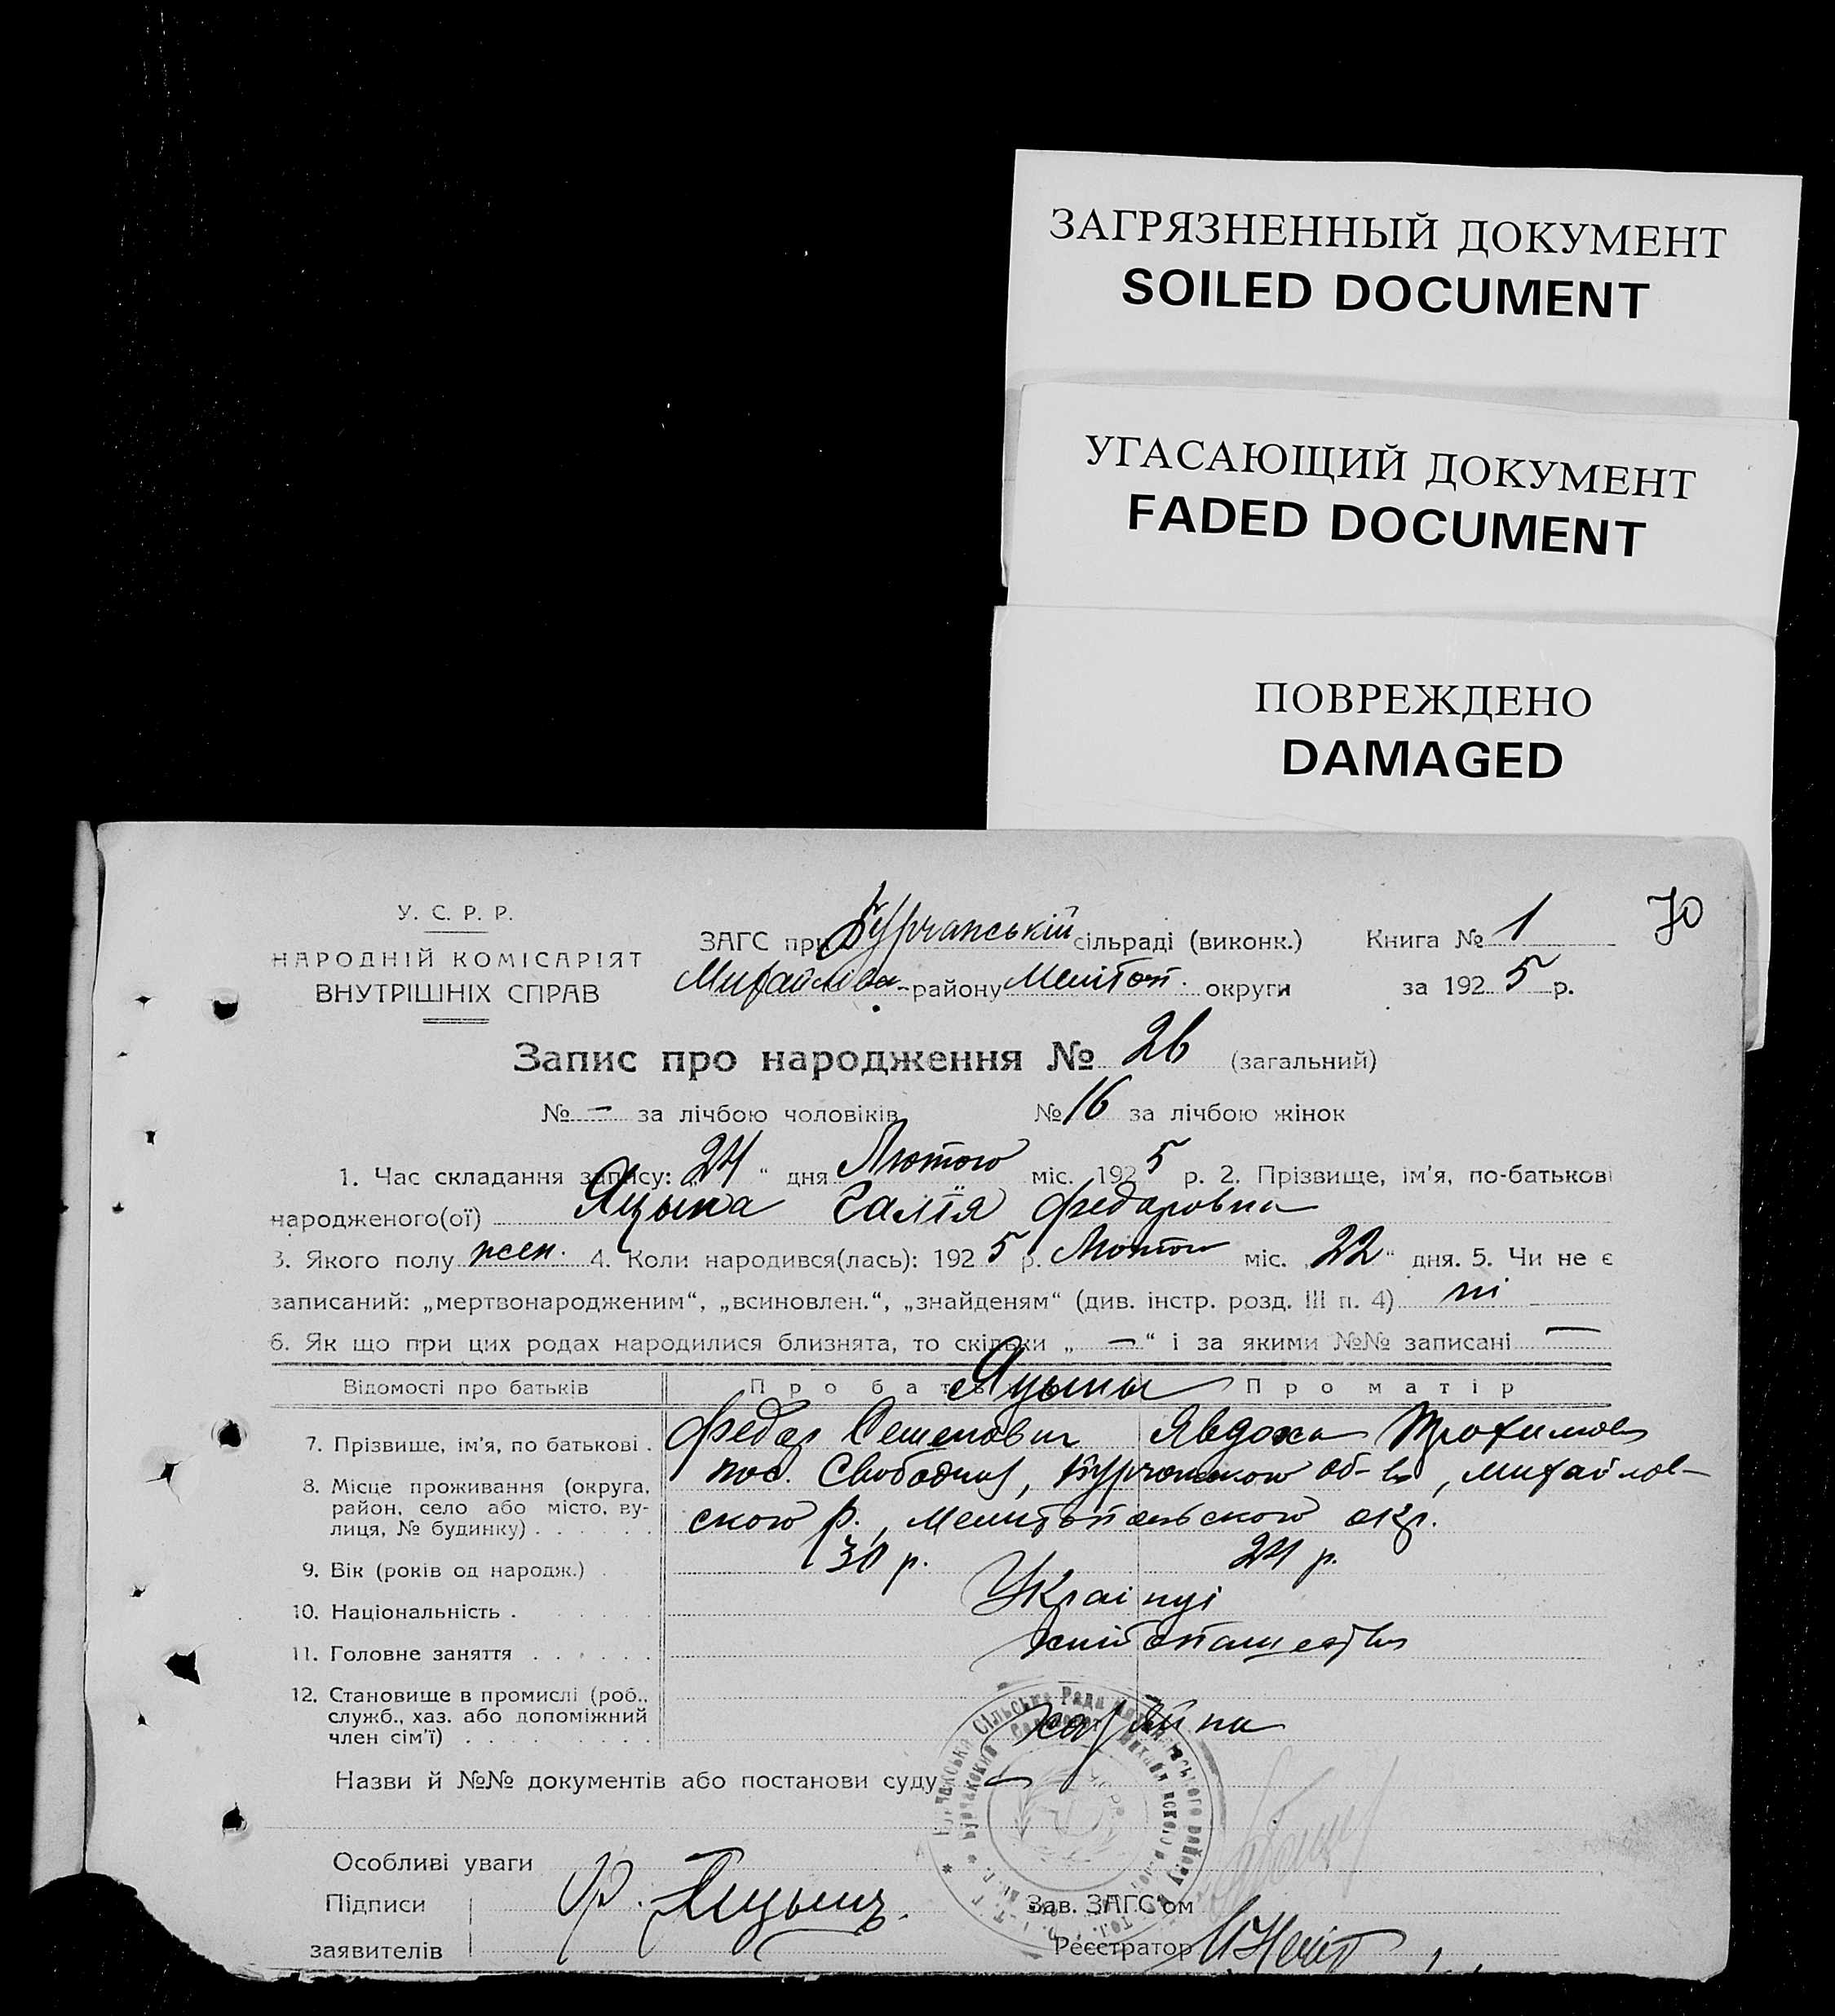 ЗАГРЯЗНЕННЫЙ ДОКУМЕНТ
SOILED DOCUMENT
УГАСАЮЩИЙ ДОКУМЕНТ
FADED DOCUMENT
ПОВРЕЖДЕНО
DAMAGED
70
У. С. Р. Р.
НАРОДНІЙ КОМІСАРІЯТ
ВНУТРІШНІХ СПРАВ
ЗАГС при Бурчанській сільраді (виконк.) Книга № 1
району Меліton. округи за 1925 р.
Запис про народження № 26 (загальний)
№ – за лічбою чоловіків № 16 за лічбою жінок
1. Час складання запису: „24“ дня Лютого міс. 1925 р. 2. Прізвище, ім'я, по-батькові
народженого(ої) Яцына Галія Федаровна
3. Якого полу жен. 4. Коли народився(лась): 1925 р. Лютого міс. „22“ дня. 5. Чи не є
записаний: „мертвонародженим“, „всиновлен.“, „знайденям“ (див. інстр. розд. III п. 4) ні
6. Як що при цих родах народилися близнята, то скільки „—“ і за якими №№ записані —
Відомості про батьків Про батька Яцыны Про матір
7. Прізвище, ім'я, по батькові . Федор Семенович Явдоха Трохимовн
8. Місце проживання (округа, район, село або місто, вулиця, № будинку) . . . . . . пос. Свободний, Бурчанського об-ва, Михайлов-
ского р., Мелитопольского окр.
9. Вік (років од народж.) . 30 р. 24 р.
10. Національність . Українці
11. Головне заняття . . . . . .
12. Становище в промислі (роб., служб., хаз. або допоміжний член сім'ї) . . . . . . . . .
Назви й №№ документів або постанови суду —
Особливі уваги
Підписи
заявителів
Ф. Яцынъ.
Зав. ЗАГС'ом
Реєстратор